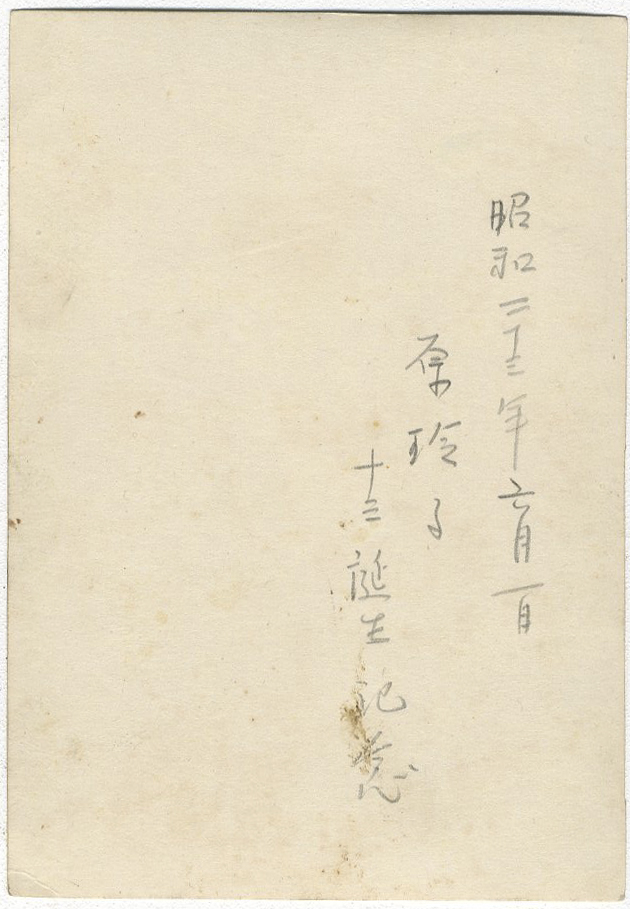 昭和二十三年六月一日
原玲子
十三誕生記念